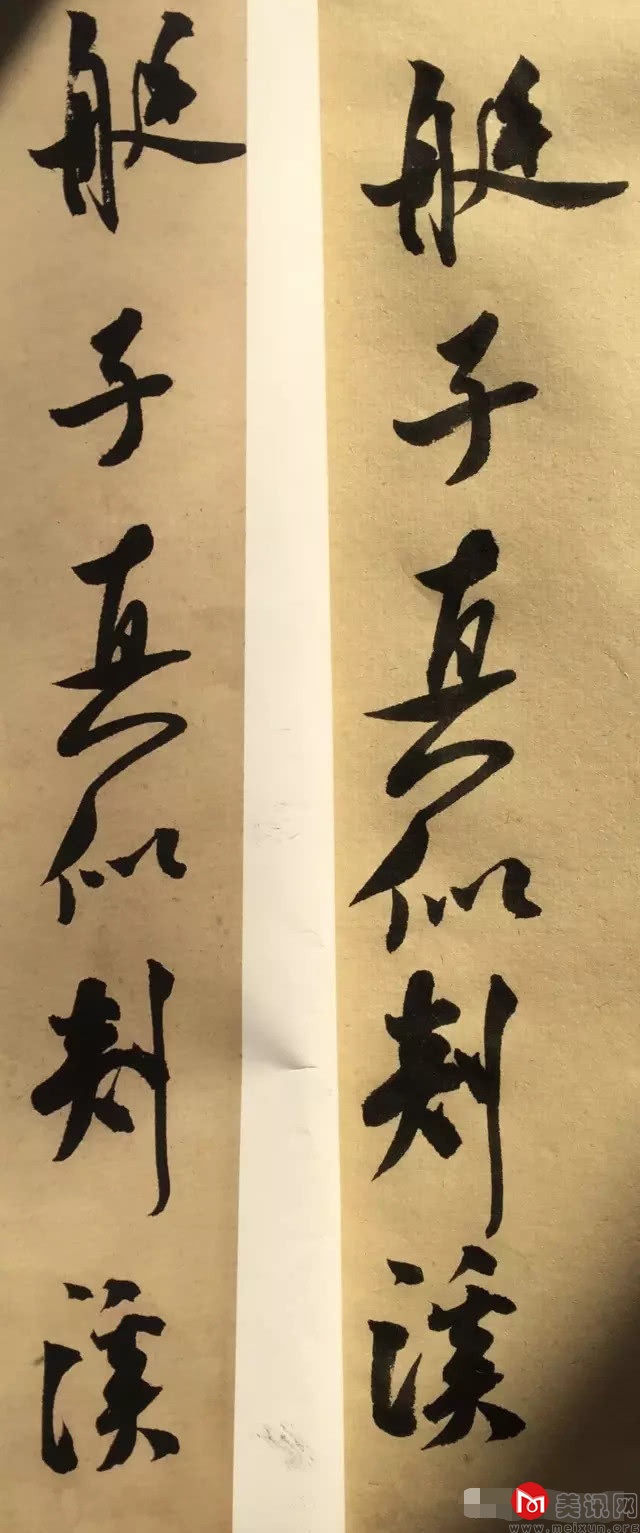 艇子真似剡溪
艇子真似剡溪
美讯网
www.meixun.org